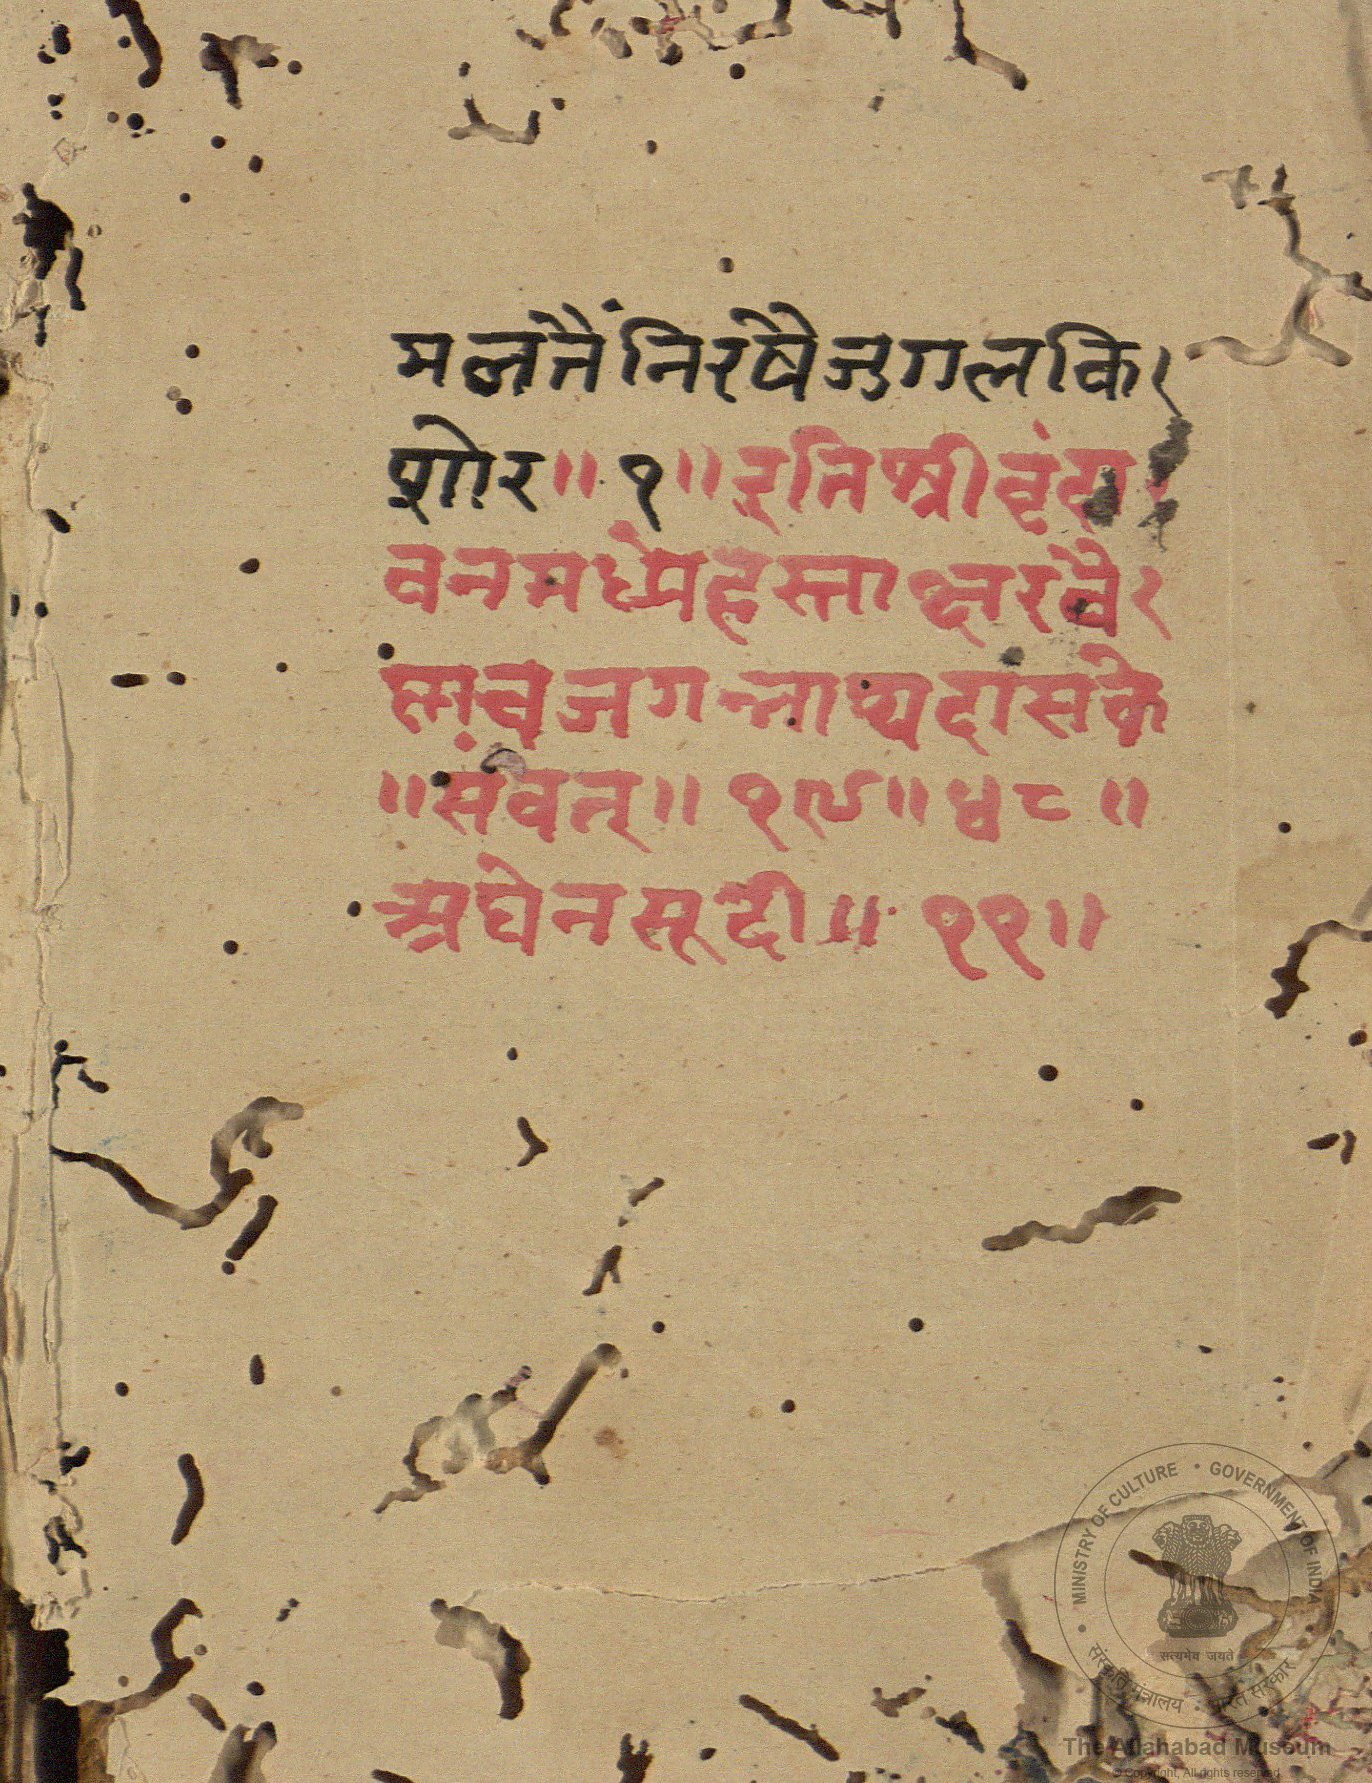 मलनैं निरषै जुगल कि
शोर ॥ १ ॥ इति श्री वृंदा
वन मध्ये हस्ताक्षर वै
स्नव जगन्नाथ्य दास के
॥ संवत् ॥ १९ ॥ ४८ ॥
अघेन सूदी ॥ ११ ॥
MINISTRY OF CULTURE • GOVERNMENT OF INDIA
सत्यमेव जयते
संस्कृति मंत्रालय • भारत सरकार
The Allahabad Museum
© Copyright, All rights reserved